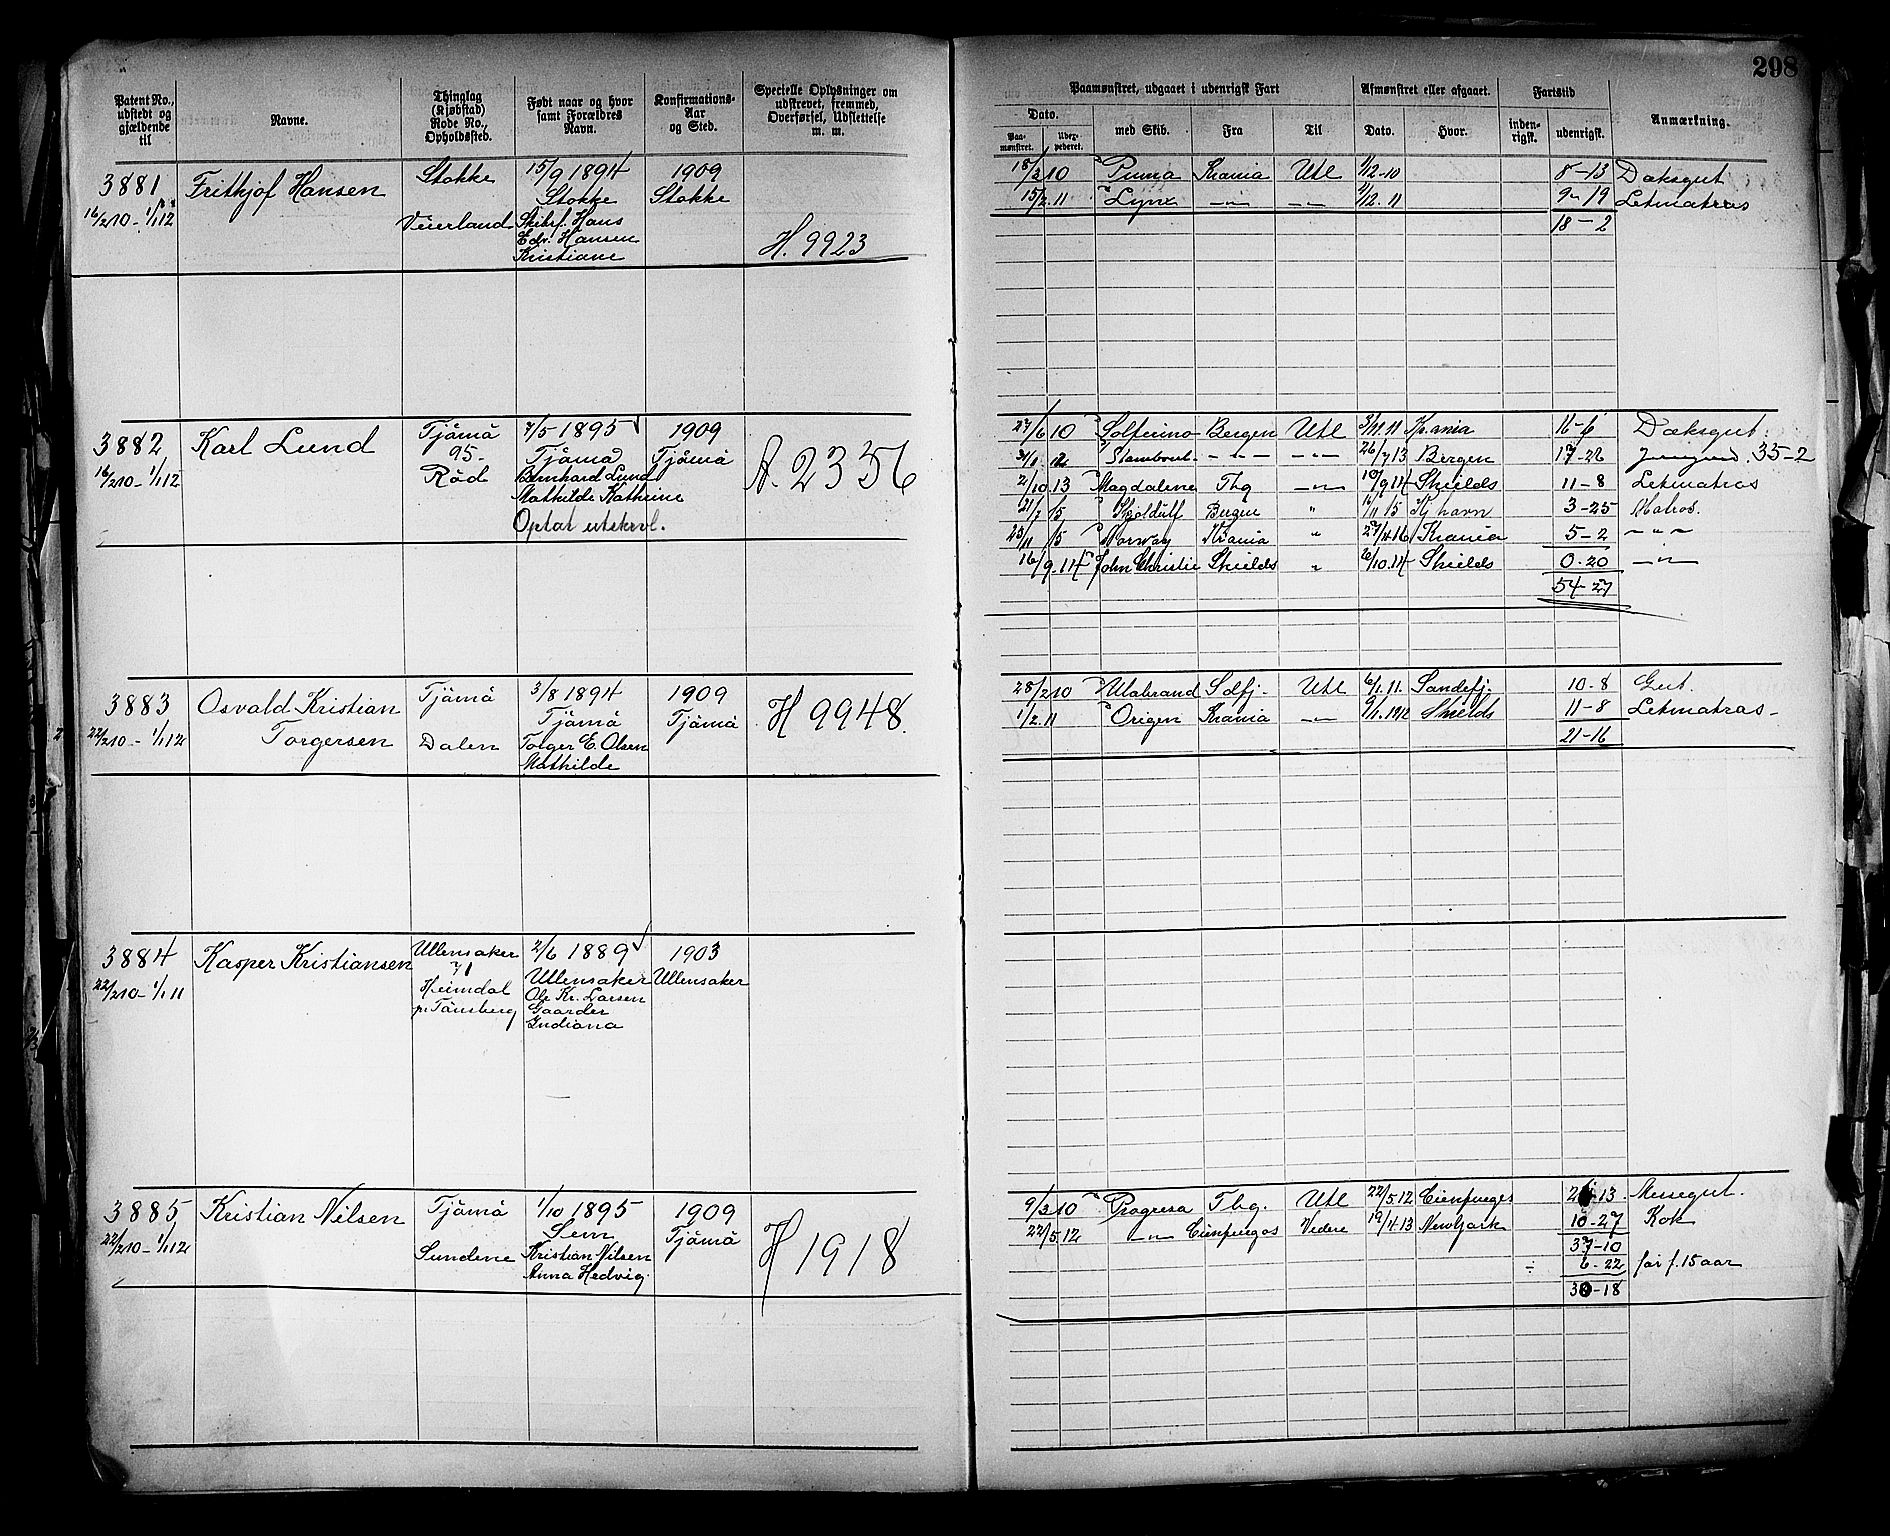 298
Patent No., udstedt og gjældende til
Navne.
Thinglag (Kjøbstad) Rode No., Opholdssted.
Født naar og hvor samt Forældres Navn.
Konfirmations-Aar og Sted.
Specielle Oplysninger om udskrevet, fremmed, Overførsel, Udslettelse m. m.
Paamønstret, udgaaet i udenrigsk Fart
Dato.
Paa-mønstret.
med Skib.
Fra
Til
Afmønstret eller afgaaet.
Dato.
Hvor.
Fartstid
inden-rigsk.
udenrigsk.
Anmærkning.
3881 Frithjof Hansen Stokke 15/9 1894 1909
16/2 10 - 1/1 12 Stokke Stokke
Veierland Skibsf. Hans
Edv. Hansen
Kristiane
H. 9923
18/2 10 Puma Krania Utl 1/12-10 8-13 Dæksgut
15/2 11 Lynx -"- -"- 4/12. 11 9-19 Letmatros
18-2
3882 Karl Lund Tjömö 7/5 1895 1909
16/2 10 - 1/1 12 95. Tjömö Tjömö
Röd Bernhard Lund
Mathilde Kathrine
Optat utskrvl.
A. 2356
27/6 10 Solferino Bergen Utl 11 Kr.ania 16-6 Dæksgut
Stamboul -"- -"- 26/7 13 Bergen 17-26 35-2
2/10. 13 Magdalene Tbg -"- 10/9 14 Shields 11-8 Letmatros
21/7 15 Skjoldulf Bergen " 16/11 15 Kj havn 3-25 Matros.
25/11 15 Norway Krania " 27/4 16 Krania 5-2 -"-
16/9. 14 John Christie Shields " 6/10. 14 Shields 0-20 -"-
54-27
3883 Osvald Kristian Torgersen Tjömö 3/8 1894 1909
22/2 10 - 1/1 12 Tjömö Tjömö
Dalen Torger E. Olsen
Mathilde
H 9948.
28/2 10 Ulabrand Sdfj. Utl 6/1. 11. Sandefj. 10-8 Gut.
1/2. 11 Origen Krania -"- 9/1. 1912 Shields 11-8 Letmatros
21-16
3884 Kasper Kristiansen Ullensaker 2/6 1889 1903
22/2 10 - 1/1 11 71 Ullensaker Ullensaker
Heimdal Ole Kr. Larsen
pr Tönsberg Gaarder
Indiana
3885 Kristian Nilsen Tjömö 1/10 1895 1909
22/2 10 - 1/1 12 Sem Tjömö
Sundene Kristian Nilsen
Anna Hedvig.
H 1918
9/3 10 Progreso Tbg. Utl 22/5. 12 Cienfueges 13 Messegut.
22/5. 12 -"- Cienfuegos Videre 19/4 13 New York 10-27 Kok
37-10
÷ 6-22 før f. 15 aar
30-18